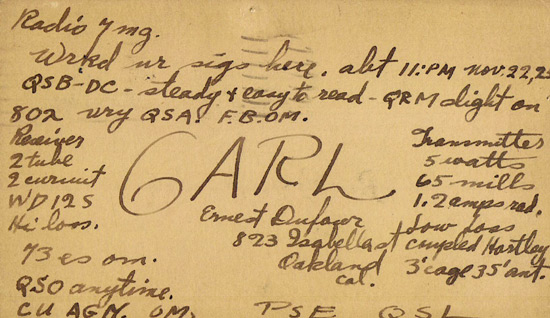 Radio 7 mg.
Wrkd ur sigs here. abt 11:PM nov. 22, 25
QSB-DC - steady & easy to read - QRM slight on
802 ury QSA. F.B.OM.
Receiver
2 tube
2 curcuit
WD 12 S
Hi loss.
6ARL
Transmitter
5 watts
65 mills
1.2 amps rad.
Low Loss
coupled Hartley
3'cage 35'ant.
Ernest Dufour
823 Isabella st
Oakland
Cal.
73 es om.
QSO anytime.
CU AGN. OM.
PSE QSL